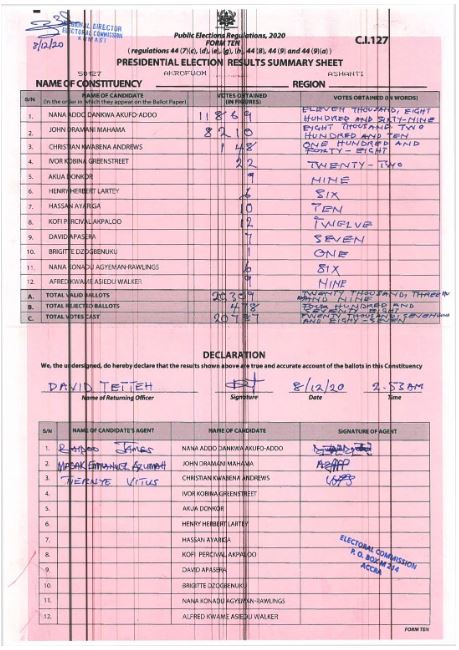 REGIONAL DIRECTOR
ELECTORAL COMMISSION
KUMASI
8/12/20
Public Elections Regulations, 2020
FORM TEN
C.I.127
( regulations 44 (7)(c), (d), (e), (g), (h), 44 (8), 44 (9) and 44 (9)(a) )
PRESIDENTIAL ELECTION RESULTS SUMMARY SHEET
AKROFUOM ASHANTI
NAME OF CONSTITUENCY REGION
S/N NAME OF CANDIDATE (In the order in which they appear on the Ballot Paper) VOTES OBTAINED (IN FIGURES) VOTES OBTAINED (IN WORDS)
1. NANA ADDO DANKWA AKUFO-ADDO 11869 ELEVEN THOUSAND, EIGHT HUNDRED AND SIXTY-NINE
2. JOHN DRAMANI MAHAMA 8210 EIGHT THOUSAND TWO HUNDRED AND TEN
3. CHRISTIAN KWABENA ANDREWS 148 ONE HUNDRED AND FORTY-EIGHT
4. IVOR KOBINA GREENSTREET 22 TWENTY-TWO
5. AKUA DONKOR 9 NINE
6. HENRY HERBERT LARTEY 6 SIX
7. HASSAN AYARIGA 10 TEN
8. KOFI PERCIVAL AKPALOO 12 TWELVE
9. DAVID APASERA 7 SEVEN
10. BRIGITTE DZOGBENUKU 1 ONE
11. NANA KONADU AGYEMAN-RAWLINGS 6 SIX
12. ALFRED KWAME ASIEDU WALKER 9 NINE
A. TOTAL VALID BALLOTS 20309 TWENTY THOUSAND, THREE AND NINE
B. TOTAL REJECTED BALLOTS 478 FOUR HUNDRED AND SEVENTY EIGHT
C. TOTAL VOTES CAST 20787 TWENTY THOUSAND, SEVEN AND EIGHTY-SEVEN
DECLARATION
We, the undersigned, do hereby declare that the results shown above are true and accurate account of the ballots in this Constituency
DAVID TETTEH 8/12/20 2.53AM
Name of Returning Officer Signature Date Time
S/N NAME OF CANDIDATE'S AGENT NAME OF CANDIDATE SIGNATURE OF AGENT
1. JAMES NANA ADDO DANKWA AKUFO-ADDO
2. EMMANUEL JOHN DRAMANI MAHAMA
3. VITUS CHRISTIAN KWABENA ANDREWS
4. IVOR KOBINA GREENSTREET
5. AKUA DONKOR
6. HENRY HERBERT LARTEY
7. HASSAN AYARIGA
8. KOFI PERCIVAL AKPALOO
9. DAVID APASERA
10. BRIGITTE DZOGBENUKU
11. NANA KONADU AGYEMAN-RAWLINGS
12. ALFRED KWAME ASIEDU WALKER
ELECTORAL COMMISSION
P. O. BOX M 214
ACCRA
FORM TEN